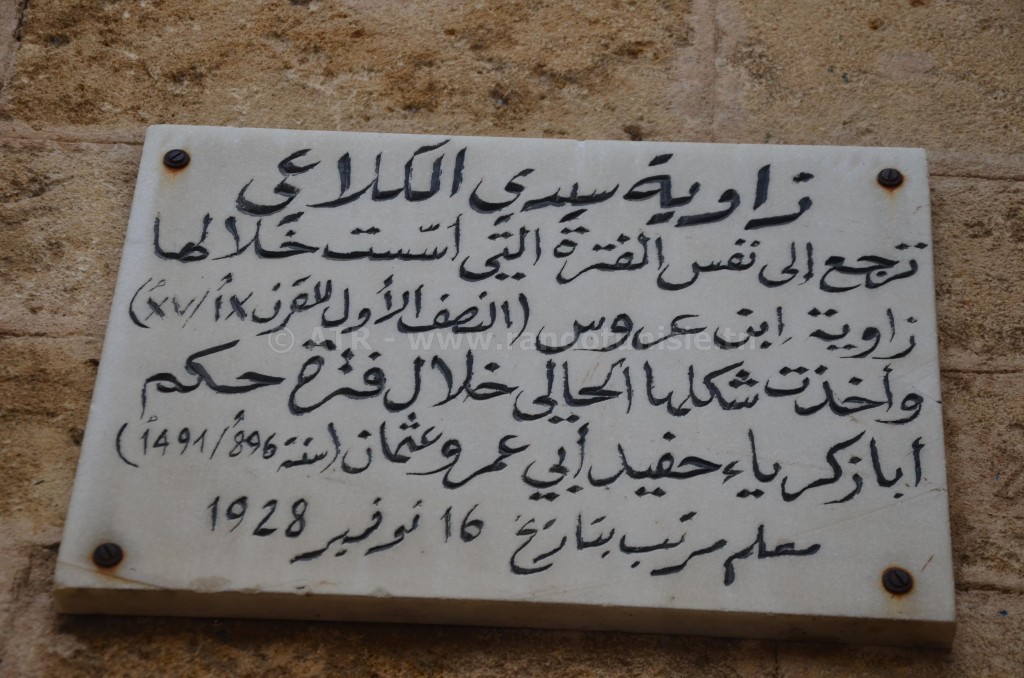 زاوية سيدي الكلاعي
ترجع إلى نفس الفترة التي أسّست خلالها
زاوية إبن عروس (النصف الأول للقرن IXه/XVم)
وأخذت شكلها الحالي خلال فترة حكم
أبا زكرياء حفيد أبي عمرو عثمان (سنة 896ه/1491م)
معلم مرتب بتاريخ 16 نوفمبر 1928
© ATR - www.randotunisie.tn